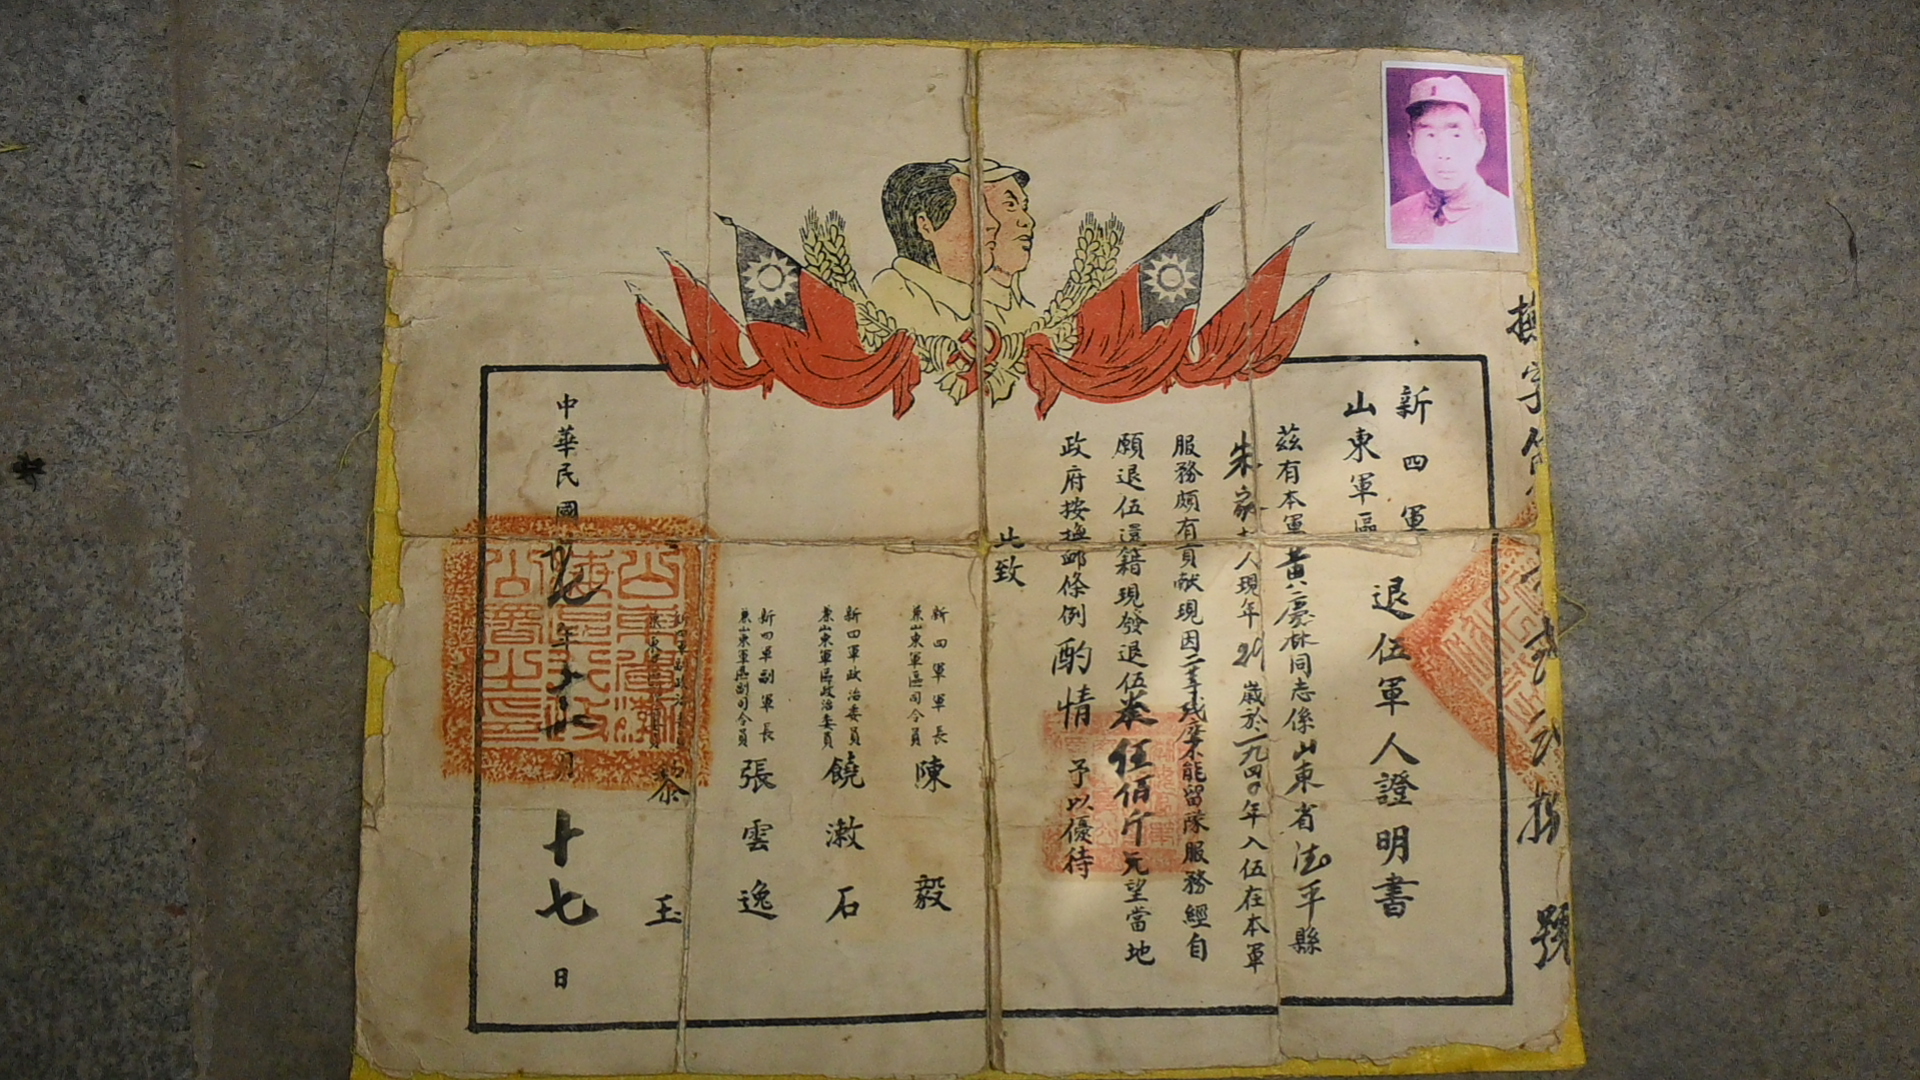 新四軍
山東軍區
退伍軍人證明書
茲有本軍黃慶林同志係山東省 平縣
朱家 人現年 歲於一九四 年入伍在本軍
服務頗有貢献現因二等残廢不能留隊服務經自
願退伍還籍現發退伍 伍佰斤元望當地
政府按撫卹條例酌情予以優待
此致
新四軍軍長
兼山東軍區司令員
陳毅
新四軍政治委員
兼山東軍區政治委員
饒漱石
新四軍副軍長
兼山東軍區副司令員
張雲逸
黎玉
中華民國 年 月十七日
字第 號